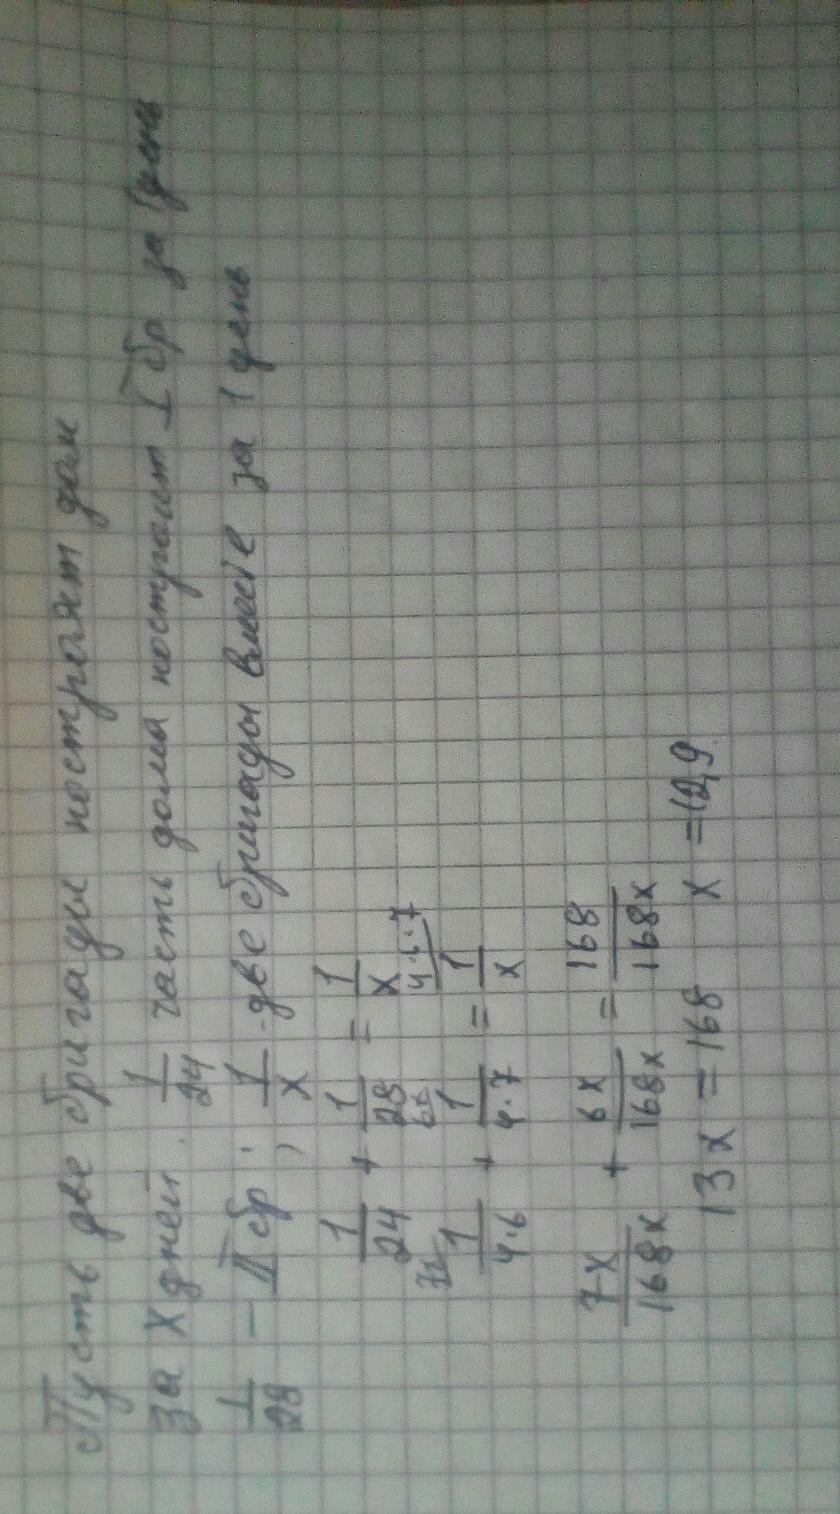 Пусть две бригады построят дом
за x дней. 1/24 часть дома поступает I бр за 1 день
1/28 - II бр; 1/x - две бригады вместе за 1 день
1/24 + 1/28 = 1/x
7x 6x 4·6·7
1/4·6 + 1/4·7 = 1/x
7x/168x + 6x/168x = 168/168x
13x = 168 x = 12,9